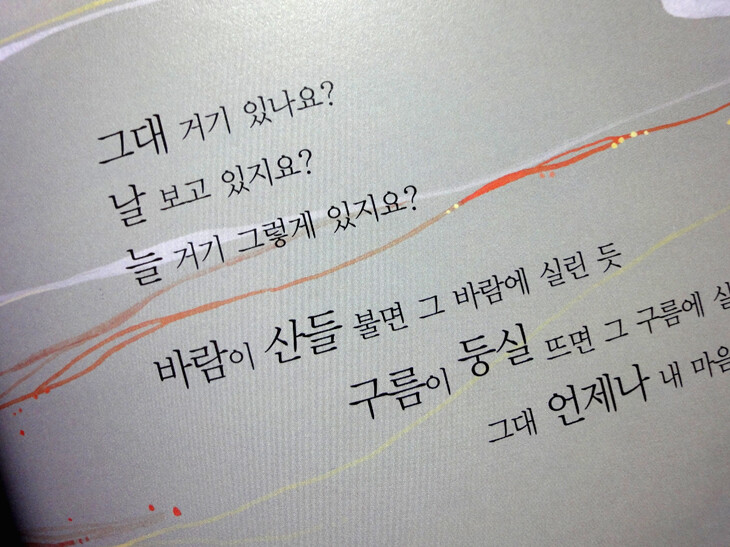 그대 거기 있나요?
날 보고 있지요?
늘 거기 그렇게 있지요?
바람이 산들 불면 그 바람에 실린 듯
구름이 둥실 뜨면 그 구름에 실
그대 언제나 내 마음